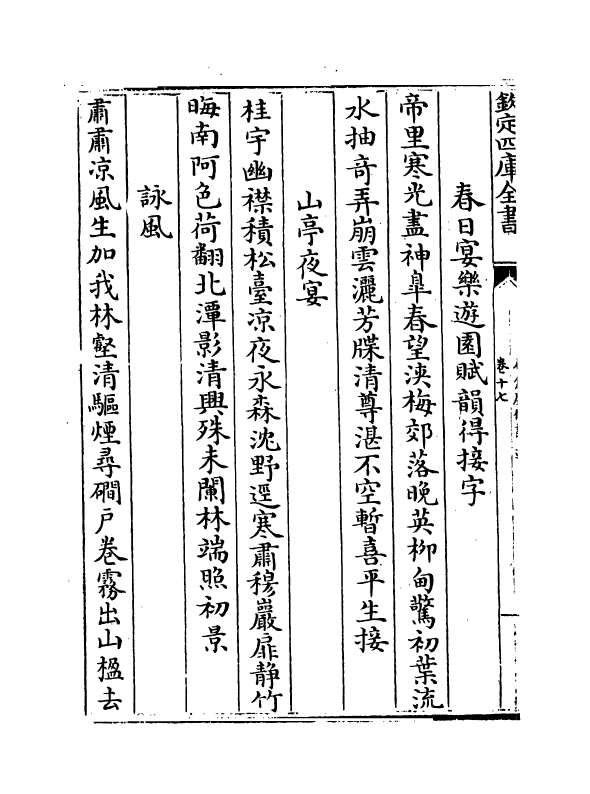 欽定四庫全書
卷十七
春日宴樂遊園賦韻得接字
帝里寒光盡神臯春望浹梅郊落晚英柳甸驚初葉流
水抽奇弄崩雲灑芳牒清尊湛不空暫喜平生接
山亭夜宴
桂宇幽襟積松臺凉夜永森沈野逕寒肅穆巖扉靜竹
晦南阿色荷翻北潭影清興殊未闌林端照初景
詠風
肅肅凉風生加我林壑清驅煙尋磵戸卷霧出山楹去